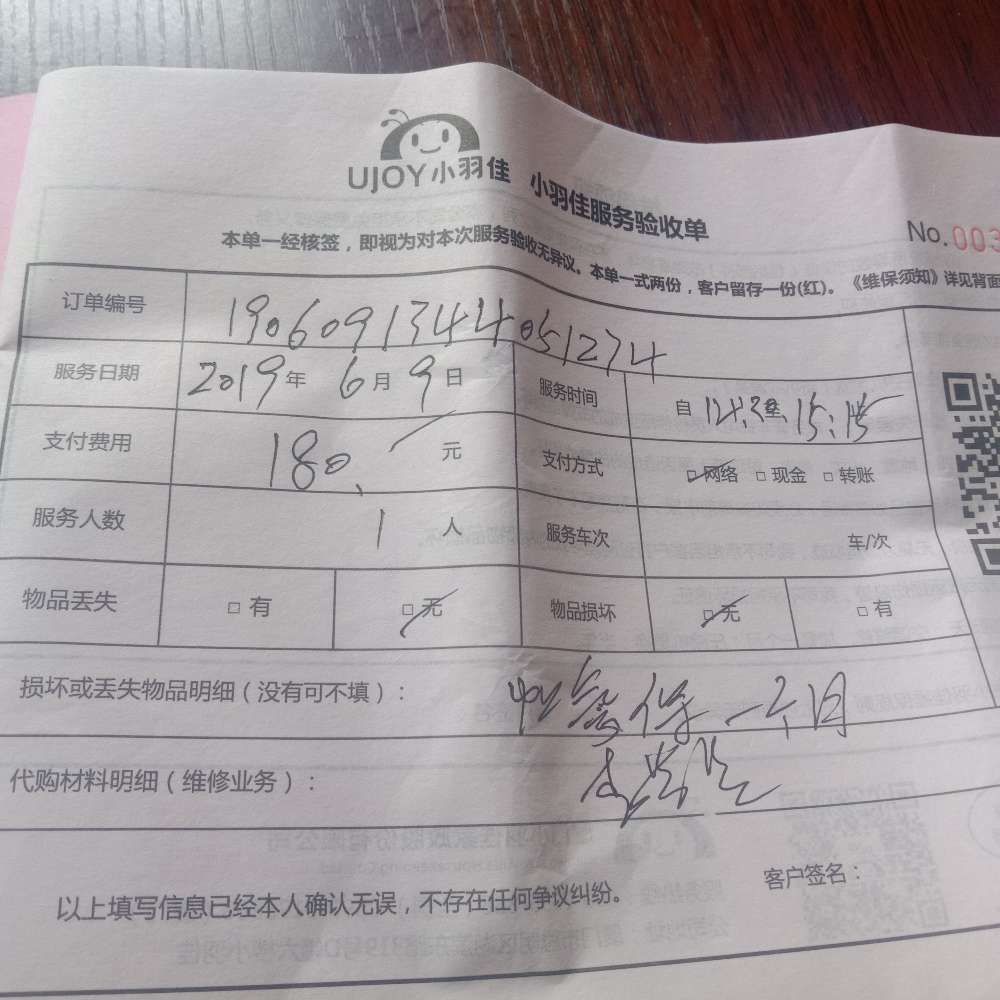 UJOY小羽佳 小羽佳服务验收单
No.003
本单一经核签，即视为对本次服务验收无异议。本单一式两份，客户留存一份(红)。《维保须知》详见背面
订单编号 19060913444051274
服务日期 2019年 6月9日 服务时间 自 至 15:15
支付费用 180. 元 支付方式 □网络 □现金 □转账
服务人数 1 人 服务车次 车/次
物品丢失 □有 □无 物品损坏 □无 □有
损坏或丢失物品明细（没有可不填）： 保一个月
代购材料明细（维修业务）：
客户签名：
以上填写信息已经本人确认无误，不存在任何争议纠纷。